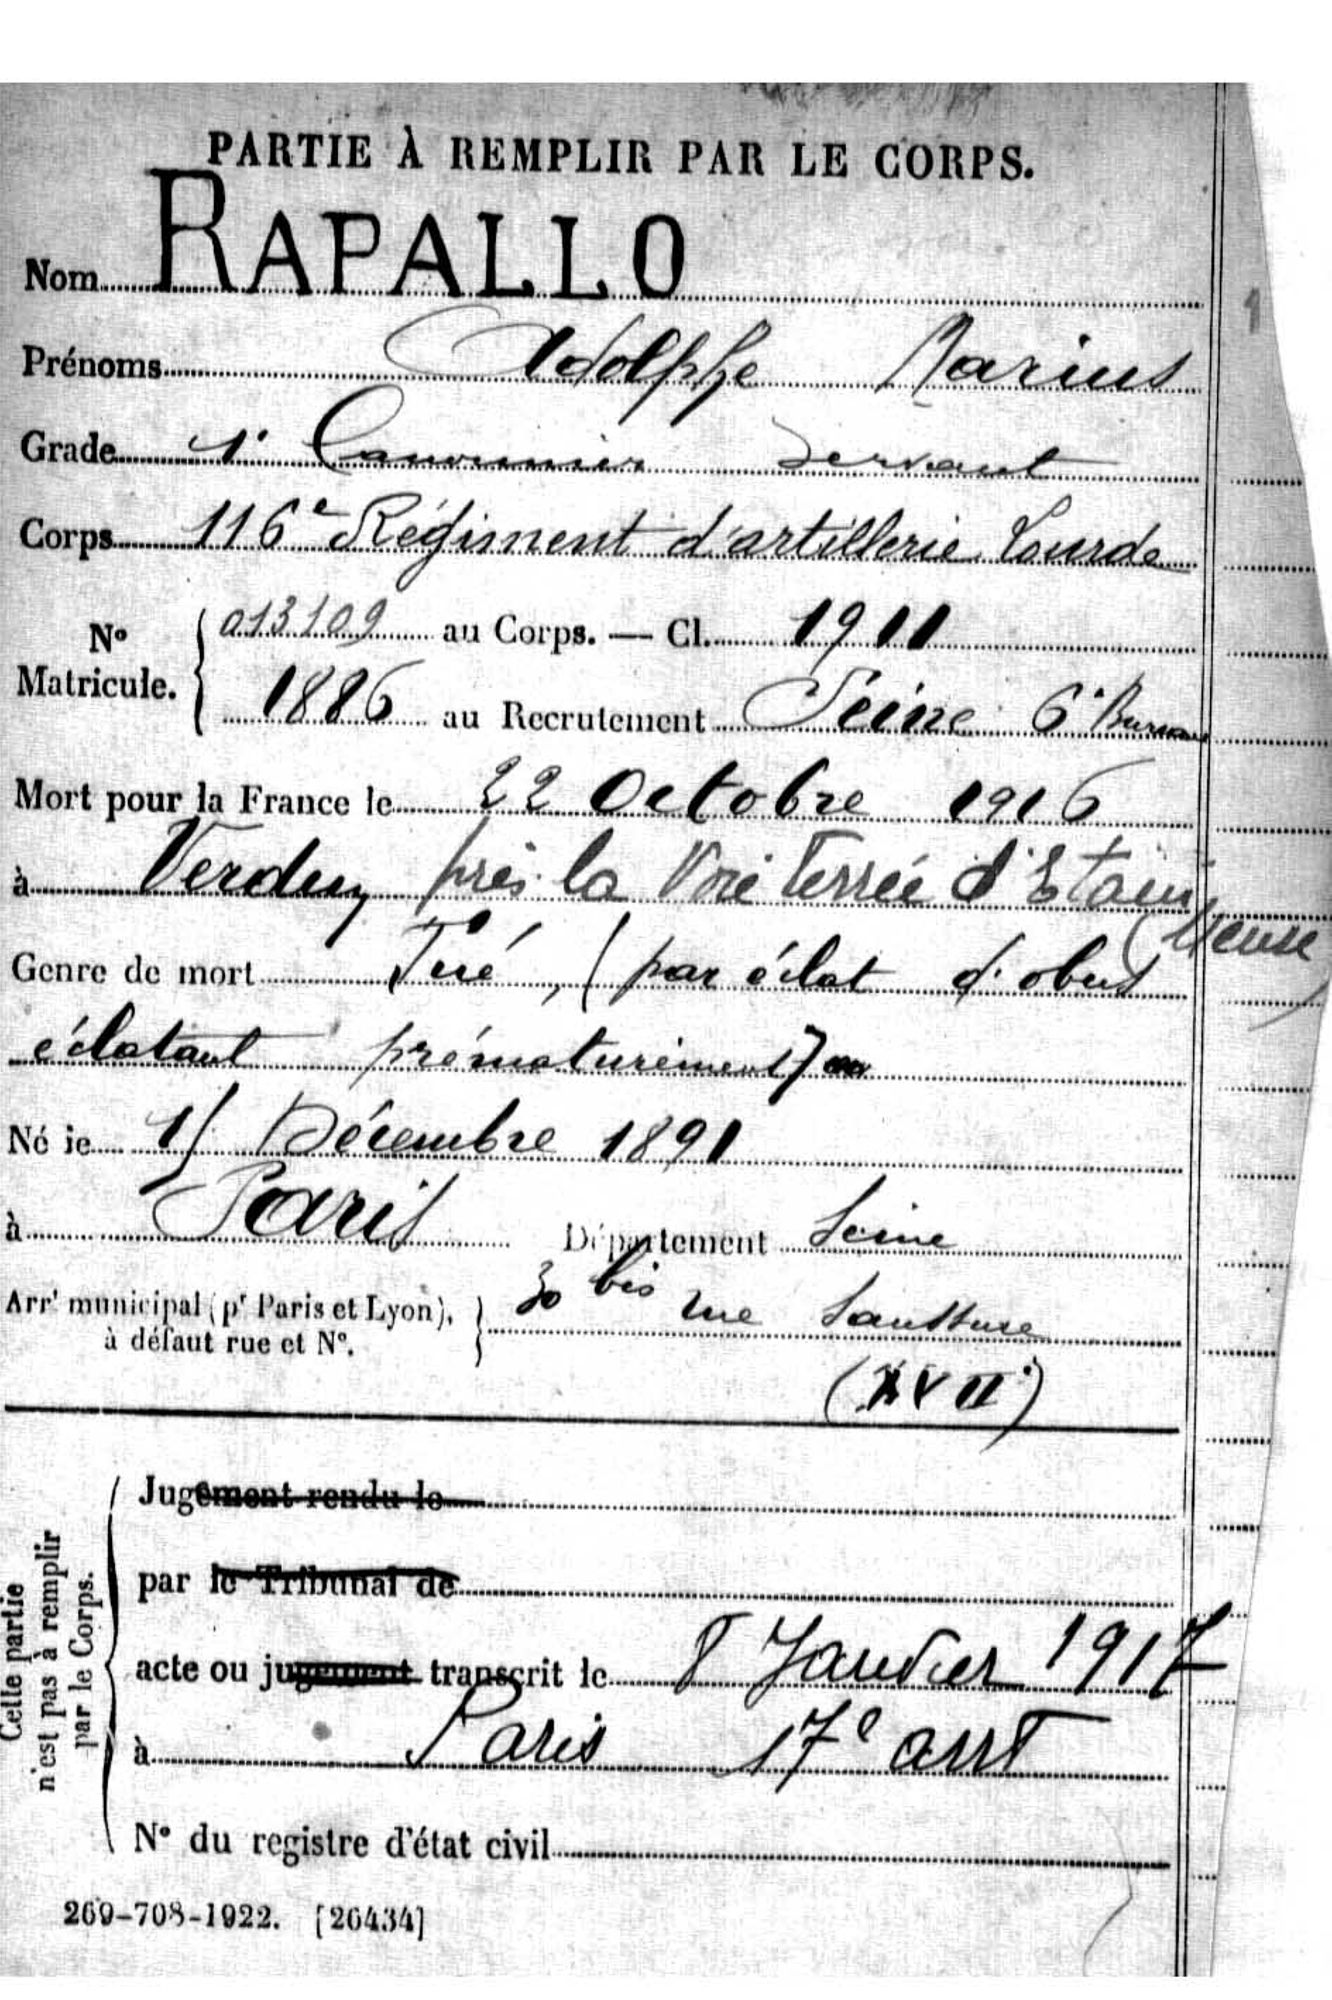 PARTIE À REMPLIR PAR LE CORPS.
Nom RAPALLO
Prénoms Adolphe Marius
Grade 1er Canonnier Servant
Corps 116e Régiment d'artillerie Lourde
No Matricule. { 013109 au Corps. — Cl. 1911
1886 au Recrutement Seine 6e Bureau
Mort pour la France le 22 Octobre 1916
à Verdun près la Voie ferrée d'Etain
(Meuse)
Genre de mort Tué, (par éclat d'obus
éclatant prématurément)
Né le 15 Décembre 1891
à Paris Département Seine
Arrt municipal (pr Paris et Lyon), à défaut rue et No. } 30 bis rue Saussure
(XVIIe)
Cette partie n'est pas à remplir par le Corps.
Jugement rendu le
par le Tribunal de
acte ou jugement transcrit le 8 Janvier 1917
à Paris 17e arrt
No du registre d'état civil
269-708-1922. [26434]